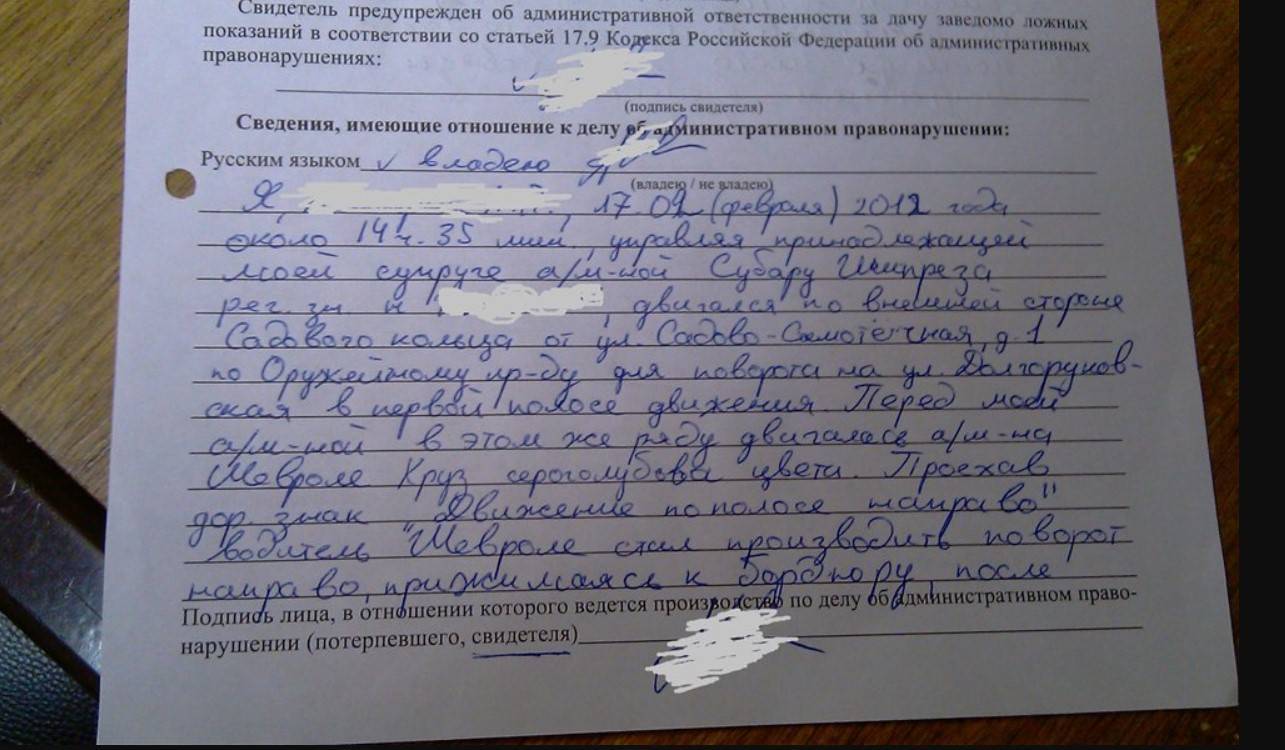 Свидетель предупрежден об административной ответственности за дачу заведомо ложных
показаний в соответствии со статьей 17.9 Кодекса Российской Федерации об административных
правонарушениях:
(подпись свидетеля)
Сведения, имеющие отношение к делу об административном правонарушении:
Русским языком владею
(владею / не владею)
Я, 17.02 (февраля) 2012 года
около 14ч. 35 мин, управляя принадлежащей
моей супруге а/м-ной Субару Импреза
рег. зн. н , двигался по внешней стороне
Садового кольца от ул. Садово-Самотёчная, д.1
по Оружейному пр-ду для поворота на ул. Долгоруков-
ская в первой полосе движения. Перед моей
а/м-ной в этом же ряду двигалась а/м-на
Шевроле Круз сероголубова цвета. Проехав
дор. знак "Движение по полосе направо"
водитель "Шевроле стал производить поворот
направо, прижимаясь к бордюру, после
Подпись лица, в отношении которого ведется производство по делу об административном право-
нарушении (потерпевшего, свидетеля)